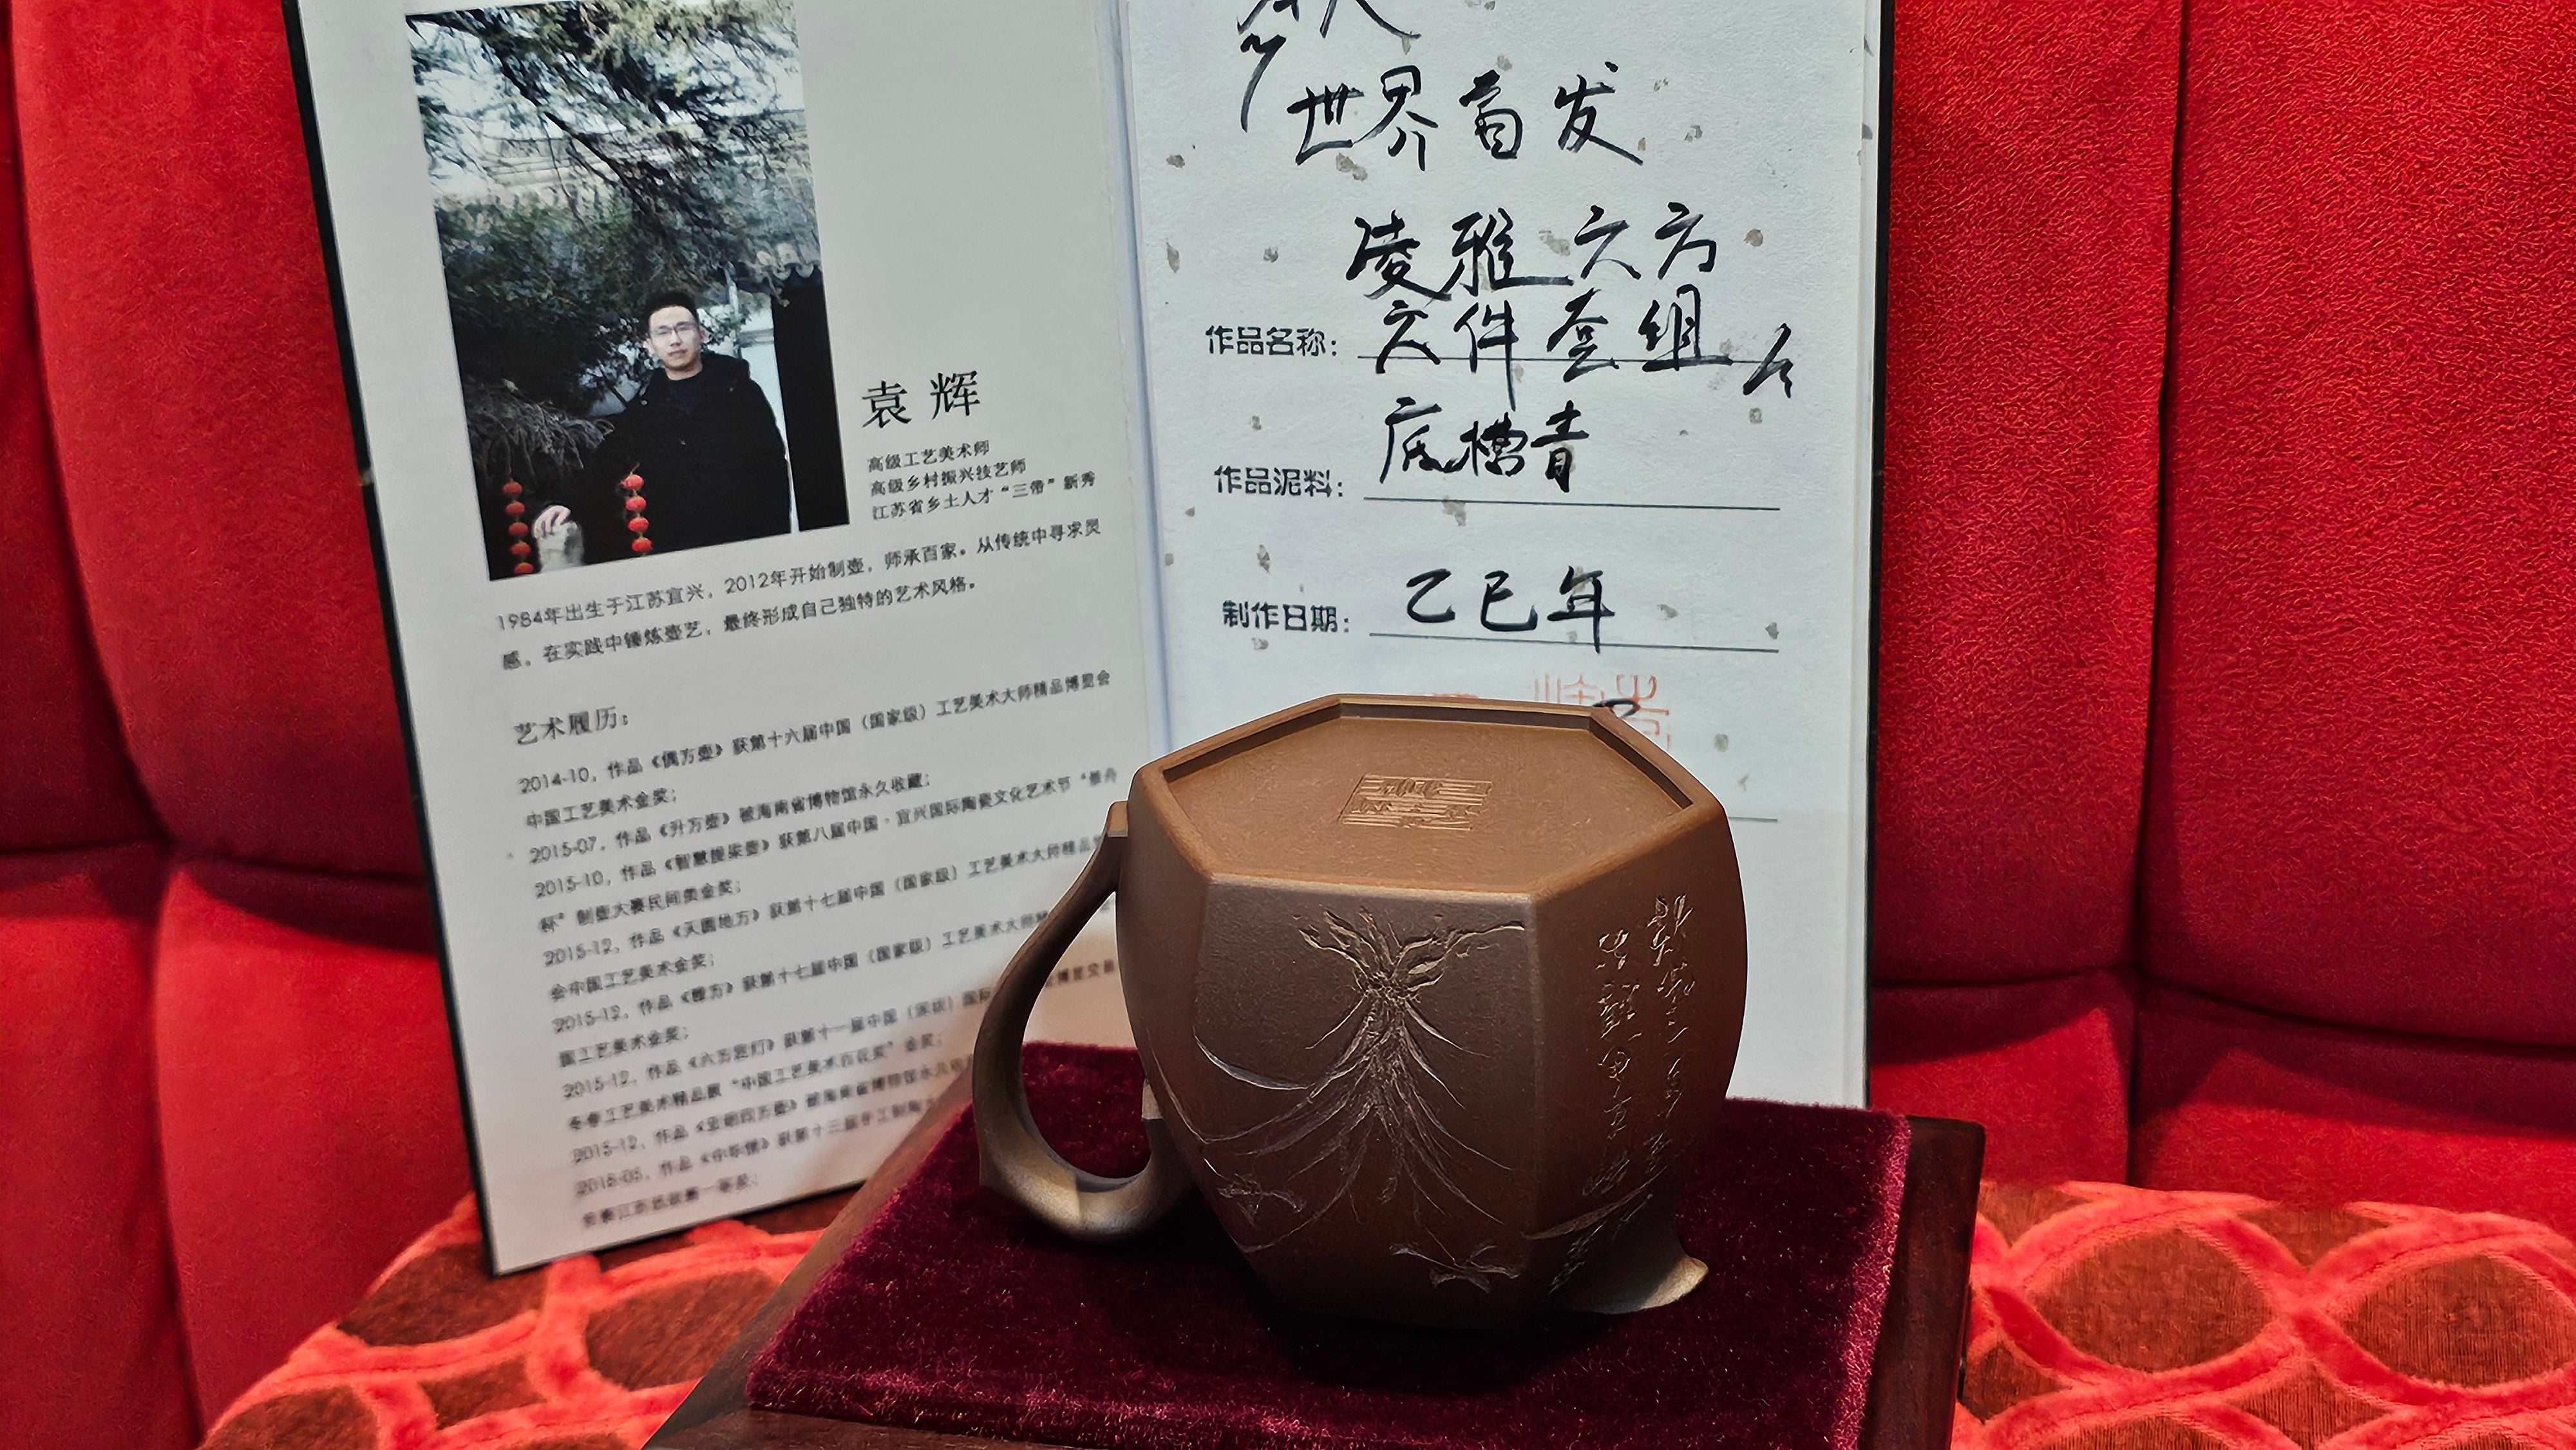 袁辉
高级工艺美术师
高级乡村振兴技艺师
江苏省乡土人才“三带”新秀
1984年出生于江苏宜兴，2012年开始制壶，师承百家。从传统中寻求灵
感，在实践中锤炼壶艺，最终形成自己独特的艺术风格。
艺术履历：
2014-10，作品《偶方壶》获第十六届中国（国家级）工艺美术大师精品博览会
中国工艺美术金奖；
2015-07，作品《升方壶》被海南省博物馆永久收藏；
2015-10，作品《智慧提梁壶》获第八届中国·宜兴国际陶瓷文化艺术节“景舟
杯”制壶大赛民间类金奖；
2015-12，作品《天圆地方》获第十七届中国（国家级）工艺美术大师精品
会中国工艺美术金奖；
2015-12，作品《 方》获第十七届中国（国家级）工艺美术大师
国工艺美术金奖；
2015-12，作品《六方宫灯》获第十一届中国（ ）国际
冬春工艺美术精品展“中国工艺美术百花奖”金奖；
2015-12，作品 四方壶》被海南省博物馆永久收
2016-05，作品 获第十三届
世界首发
凌雅六方
作品名称：六件套组
作品泥料：底槽青
制作日期：乙巳年